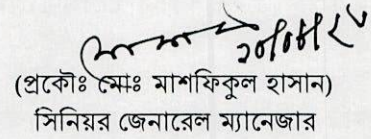 ২০/০৮/২৫
(প্রকৌঃ মোঃ মাশফিকুল হাসান)
সিনিয়র জেনারেল ম্যানেজার